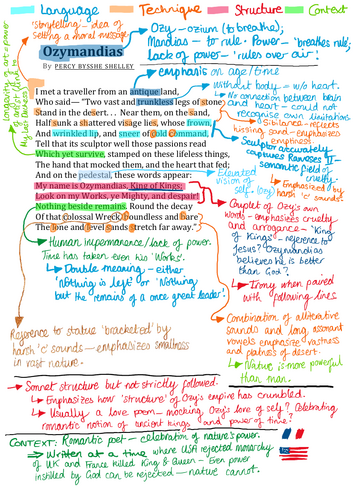 Language Technique Structure Context
"storytelling" idea of
selling a moral message.
Ozymandias
BY PERCY BYSSHE SHELLEY
Ozy - ozium (to breathe);
Mandias - to rule. Power - 'breathes rule';
Lack of power - 'rules over air'.
Longevity of art + power
emphasis on age/time
I met a traveller from an antique land,
Who said—"Two vast and trunkless legs of stone
Stand in the desert. . . . Near them, on the sand,
Half sunk a shattered visage lies, whose frown,
And wrinkled lip, and sneer of cold command,
Tell that its sculptor well those passions read
Which yet survive, stamped on these lifeless things,
The hand that mocked them, and the heart that fed;
And on the pedestal, these words appear:
My name is Ozymandias, King of Kings;
Look on my Works, ye Mighty, and despair!
Nothing beside remains. Round the decay
Of that colossal Wreck, boundless and bare
The lone and level sands stretch far away."
Without body - w/o heart.
No connection between brain
and heart - could not
recognise own limitations
Sibilance - reflects
hissing sand - emphasises
emptiness.
Sculptor accurately
captures Ramases II -
semantic field of
cruelty.
Emphasized by
harsh 'c' sounds.
Elevated
vision of
self
Couplet of Ozy's own
words - emphasizes cruelty
and arrogance - 'King
of Kings' - reference to
Jesus? Ozymandias
believes he is better
than God?
Irony when paired
with following lines
Human impermanence/lack of power.
Time has taken even his 'Works'.
Double meaning - either
'nothing is left' or 'Nothing
but the remains of a once great leader'.
Combination of alliterative
sounds and long assonant
vowels emphasize vastness
and flatness of desert.
Nature is more powerful
than man.
Reference to statue 'bracketed' by
harsh 'c' sounds - emphasizes smallness
in vast nature.
Sonnet structure but not strictly followed.
Emphasizes how 'structure' of Ozy's empire has crumbled.
Usually a love poem - mocking Ozy's love of self? Celebrating
romantic notion of ancient kings and power of time?
CONTEXT: Romantic poet - celebration of nature's power.
Written at a time where USA rejected monarchy
of UK and France killed King & Queen - Even power
instilled by God can be rejected - nature cannot.